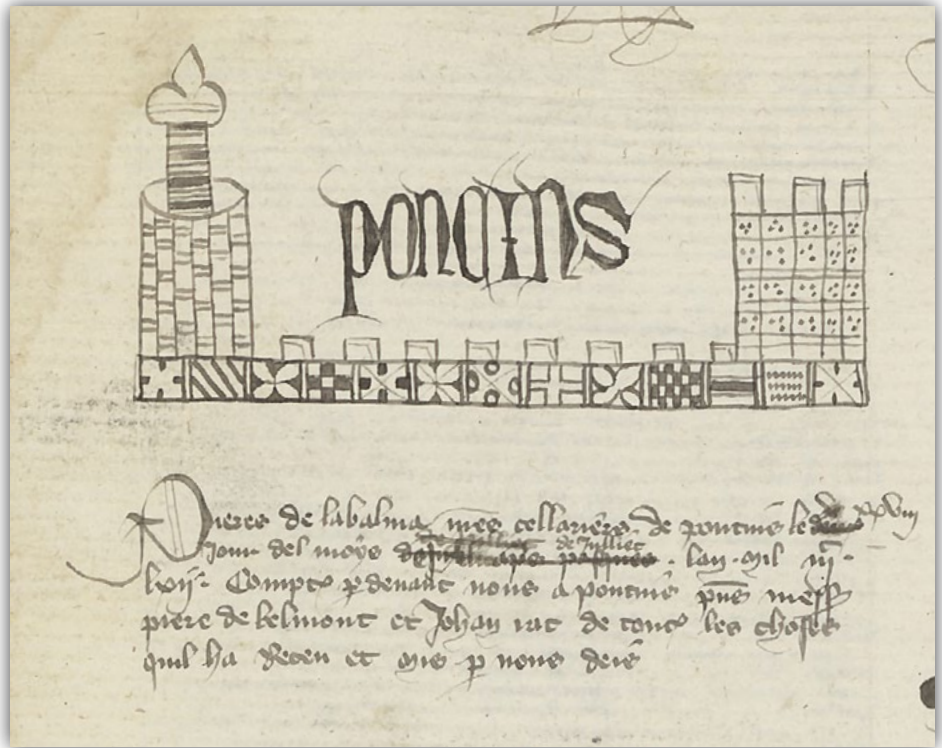 poncins
Pieres de labalma mes cellariers de poncins le xxviij
Jour del moys de Julliet . lan . mil iij
lxij . Compte p denant nous a poncins pns mess
piere de belmont et Johan rat de tout les choses
quil ha Receu et mis p nous deis